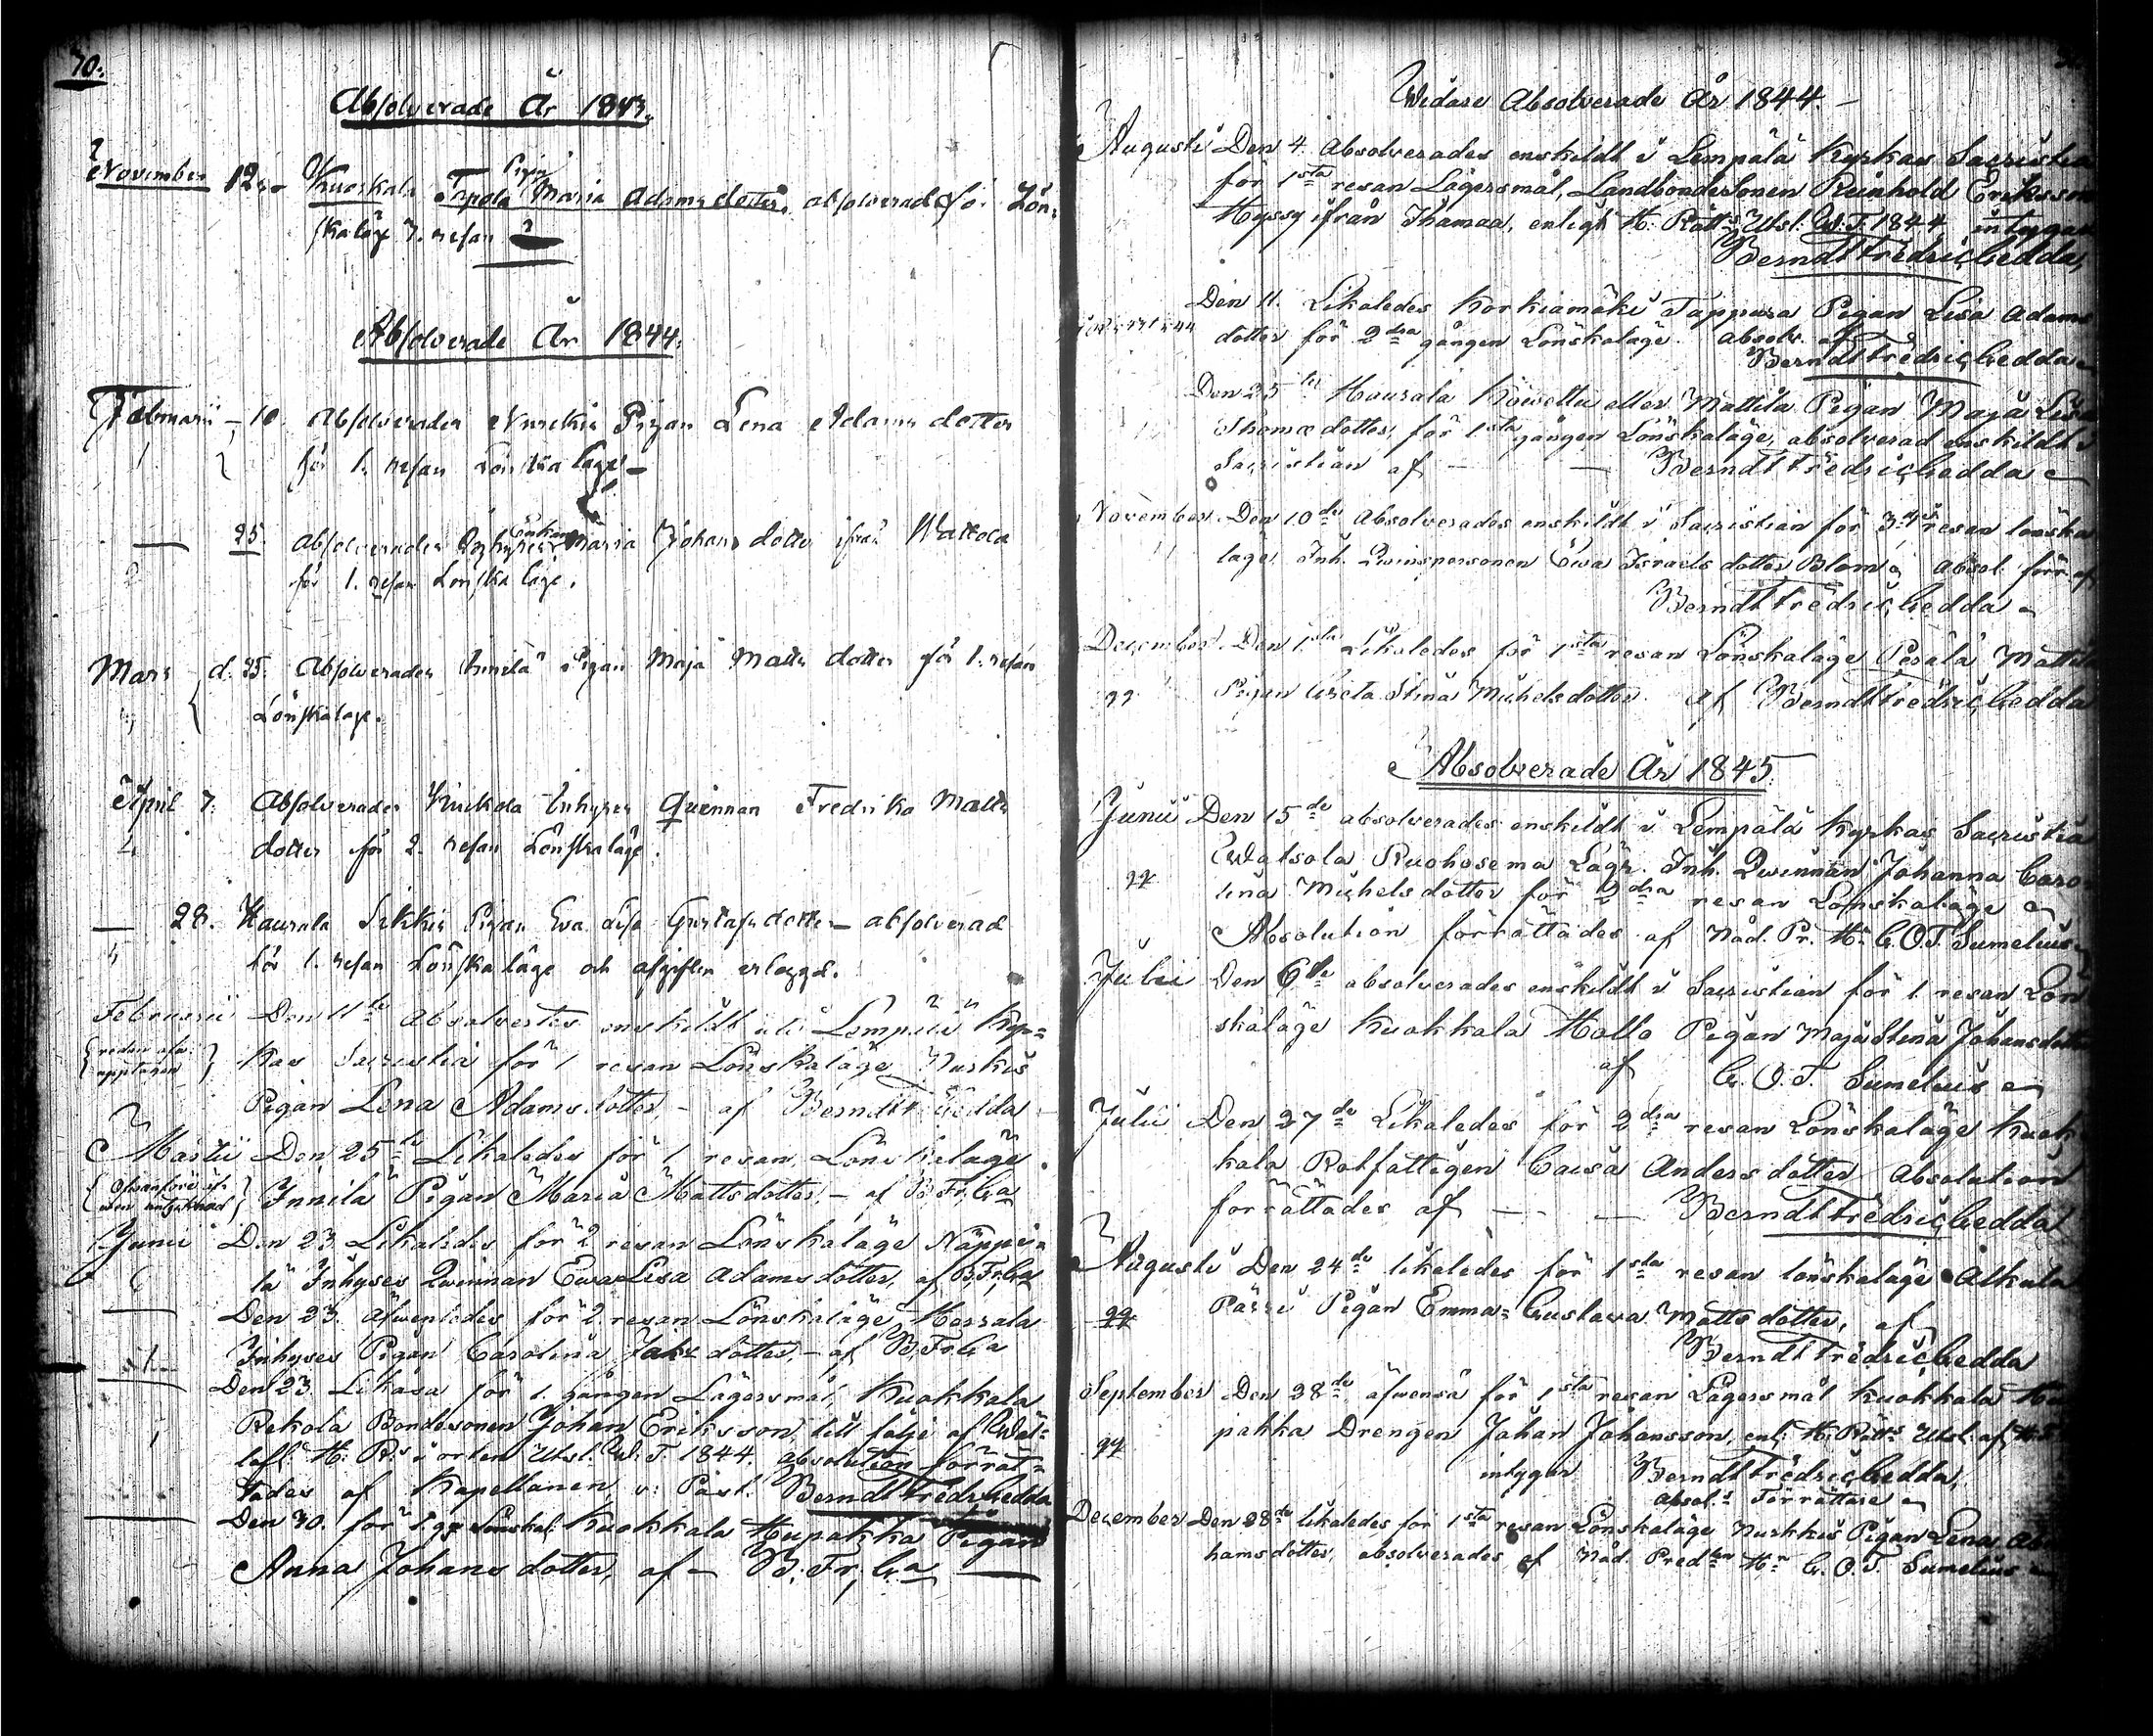 70.
Absolverade År 1843.
November 12. Kuokkala Tapola Pigan Maria Adamsdotter, absolverad för Lön-
skaläge 7. resan
Absolverade År 1844.
Februarii 10. Absolverades Nurckis Pigan Lena Adams dotter
1 för 1. resan Lönskaläge
25. Absolverades Inhyses Enkan Maria Johans dotter ifrån Wattola
2 för 1. resan Lönskaläge.
Mars d. 25. Absolverades Innilä Pigan Maja Matts dotter för 1. resan
3 Lönskaläge.
April 7. Absolverades Kuickola Inhyses Quinnan Fredrika Matts
4 dotter för 2. resan Lönskaläge.
28. Haurala Sikkis Pigan Eva Lisa Gustafs dotter absolverad
5 för 1. resan Lönskaläge och afgiften erlaggd.
Februarii Den 11te Absolvertes enskildt uti Lempälä Kyr=
redan ofvan upptagen kas Sacristia för 1 resan Lönskaläge Nurkis
Pigan Lena Adamsdotter, - af Berndt F. Gedda
Martii Den 25te Likaledes för 1 resan Lönskaläge
Innilä Pigan Maria Mattsdotter, - af B. Fr. Ga
Junii Den 23 Likaledes för 2 resan Lönskaläge Näppi=
6 lä Inhyses Qwinnan Ewa Lisa Adamsdotter, af B. Fr. Ga
Den 23. äfwenledes för 2 resan Lönskaläge Herrala
Inhyses Pigan Carolina Jakobs dotter, - af B. Fr. Ga
Den 23 Likaså för 1. gången Lägersmål, Kuokkala
Rekola Bondesonen Johan Eriksson, till följe af Wäl=
lofl. H. Rs i orten Utsl. W. T. 1844. absolution förrät=
tades af Kapellanen, v. Past. Berndt Fredr Gedda
Den 30. för 1. gg Lönskal. Kuokkala Hupakka Pigan
Anna Johans dotter, af - B. Fr. Ga
Widare Absolverade År 1844
Augusti Den 4. Absolverades enskildt i Lempälä Kyrkas Sacristia
för 1sta resan Lägersmål, Landbondesonen Reinhold Eriksson
Hyssy ifrån Thamaa, enligt H. Rätts Utsl. W. T. 1844 intygar
Berndt Fredric Gedda,
Den 11. Likaledes Korkiamäki Tappura Pigan Lisa Adams
dotter för 2dra gången Lönskaläge. absolv. af
Berndt Fredric Gedda
Den 25te Haurala Köwettu eller Mattila Pigan Maja Lisa
Thomæ dotter, för 1sta gången Lönskaläge, absolverad enskildt i
Sacristian af Berndt Fredric Gedda
November Den 10de Absolverades enskildt i Sacristian för 3die resan lönska
läge Inh. Qwinspersonen Ewa Israels dotter Blom, absol. förr. af
Berndt Fredric Gedda
December Den 1sta Likaledes för 1sta resan Lönskaläge Pesälä Mattila
Pigan Greta Stina Michelsdotter af Berndt Fredric Gedda
Absolverade År 1845
Junii Den 15de absolverades enskildt i Lempälä Kyrkas Sacristia
Watsola Ruohosema Lägr. Inh. Qwinnan Johanna Caro
lina Michelsdotter för 2dra resan Lönskaläge
Absolution förrättades af Nåd. Pr. Hr G. O. T. Sumelius
Julii Den 6te absolverades enskildt i Sacristian för 1 resan Lön
skaläge Kuokkala Hollo Pigan Maja Stina Johansdotter
af G. O. T. Sumelius
Julii Den 27de Likaledes för 2dra resan Lönskaläge Kuok
kala Rotfattigen Caisa Anders dotter Absolution
förrättades af Berndt Fredric Gedda
Augusti Den 24de likaledes för 1sta resan lönskaläge Alkula
Pässi Pigan Emma Gustava Matts dotter, af
Berndt Fredric Gedda
September Den 28de äfwenså för 1sta resan Lägersmål Kuokkala Hu
pakka Drengen Johan Johansson, enl. H. Rätts Utsl. af H. T.
intygar Berndt Fredric Gedda,
absol. s Förrättare
December Den 28de likaledes för 1sta resan Lönskaläge Nurkkis Pigan Lena Abra
hamsdotter, absolverades af Nåd. Pred. Hr G. O. T. Sumelius